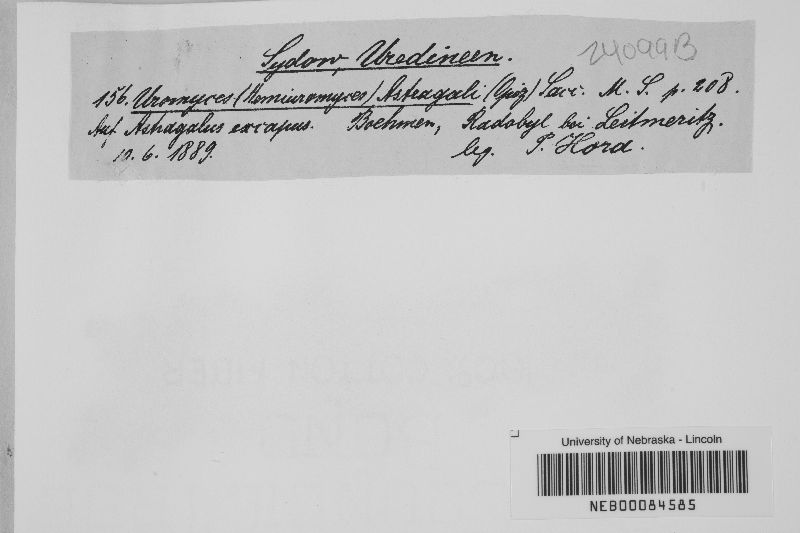 Sydow, Uredineen.
24099B
156. Uromyces (Hemiuromyces) Astragali (Opiz) Sacc. M. S. p. 208.
Auf Astragalus excapus. Boehmen, Radobyl bei Leitmeritz.
10. 6. 1889. leg. P. Hora.
University of Nebraska - Lincoln
NEB00084585